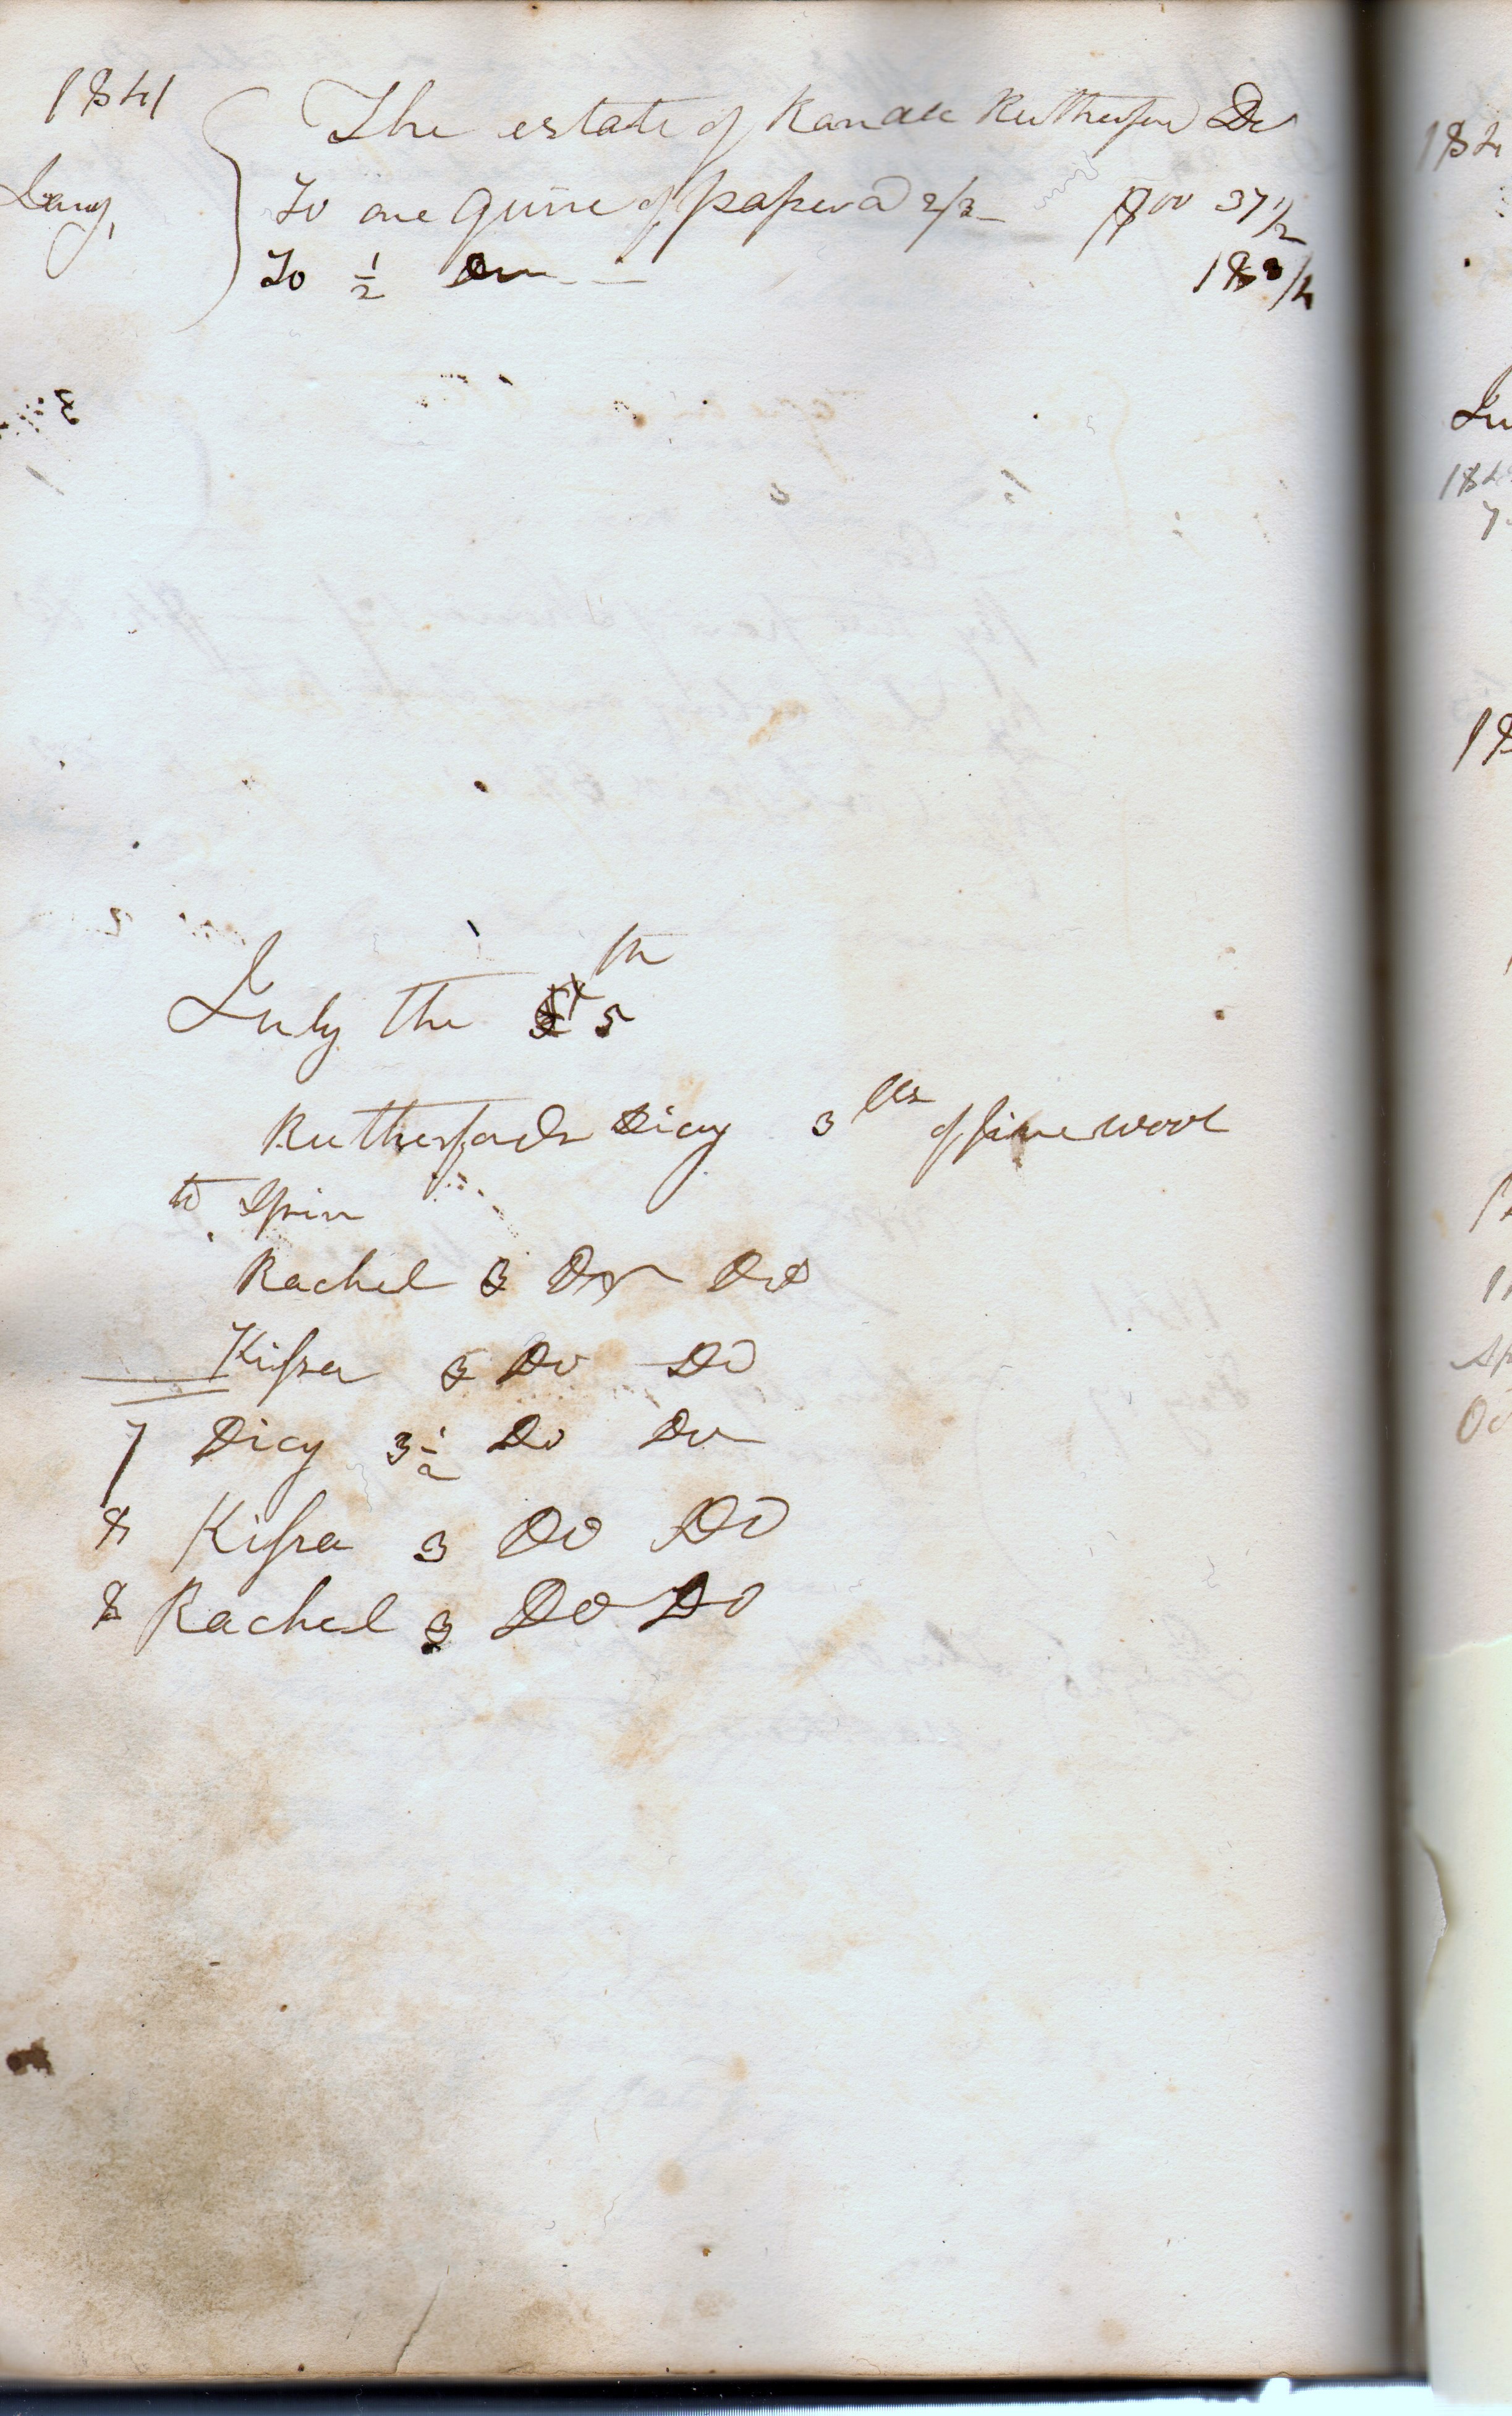 1841 The estate of Randle Rutherford Dr
Jany, To one quire of paper @ 2/3 $00 37 1/2
To 1/2 Do 18 3/4
July the 5th
Rutherfords Dicy 3 lbs of fine wool
to Spin
Rachel 3 Do Do
Kissa 3 Do Do
7 Dicy 3 1/2 Do Do
8 Kissa 3 Do Do
8 Rachel 3 Do Do